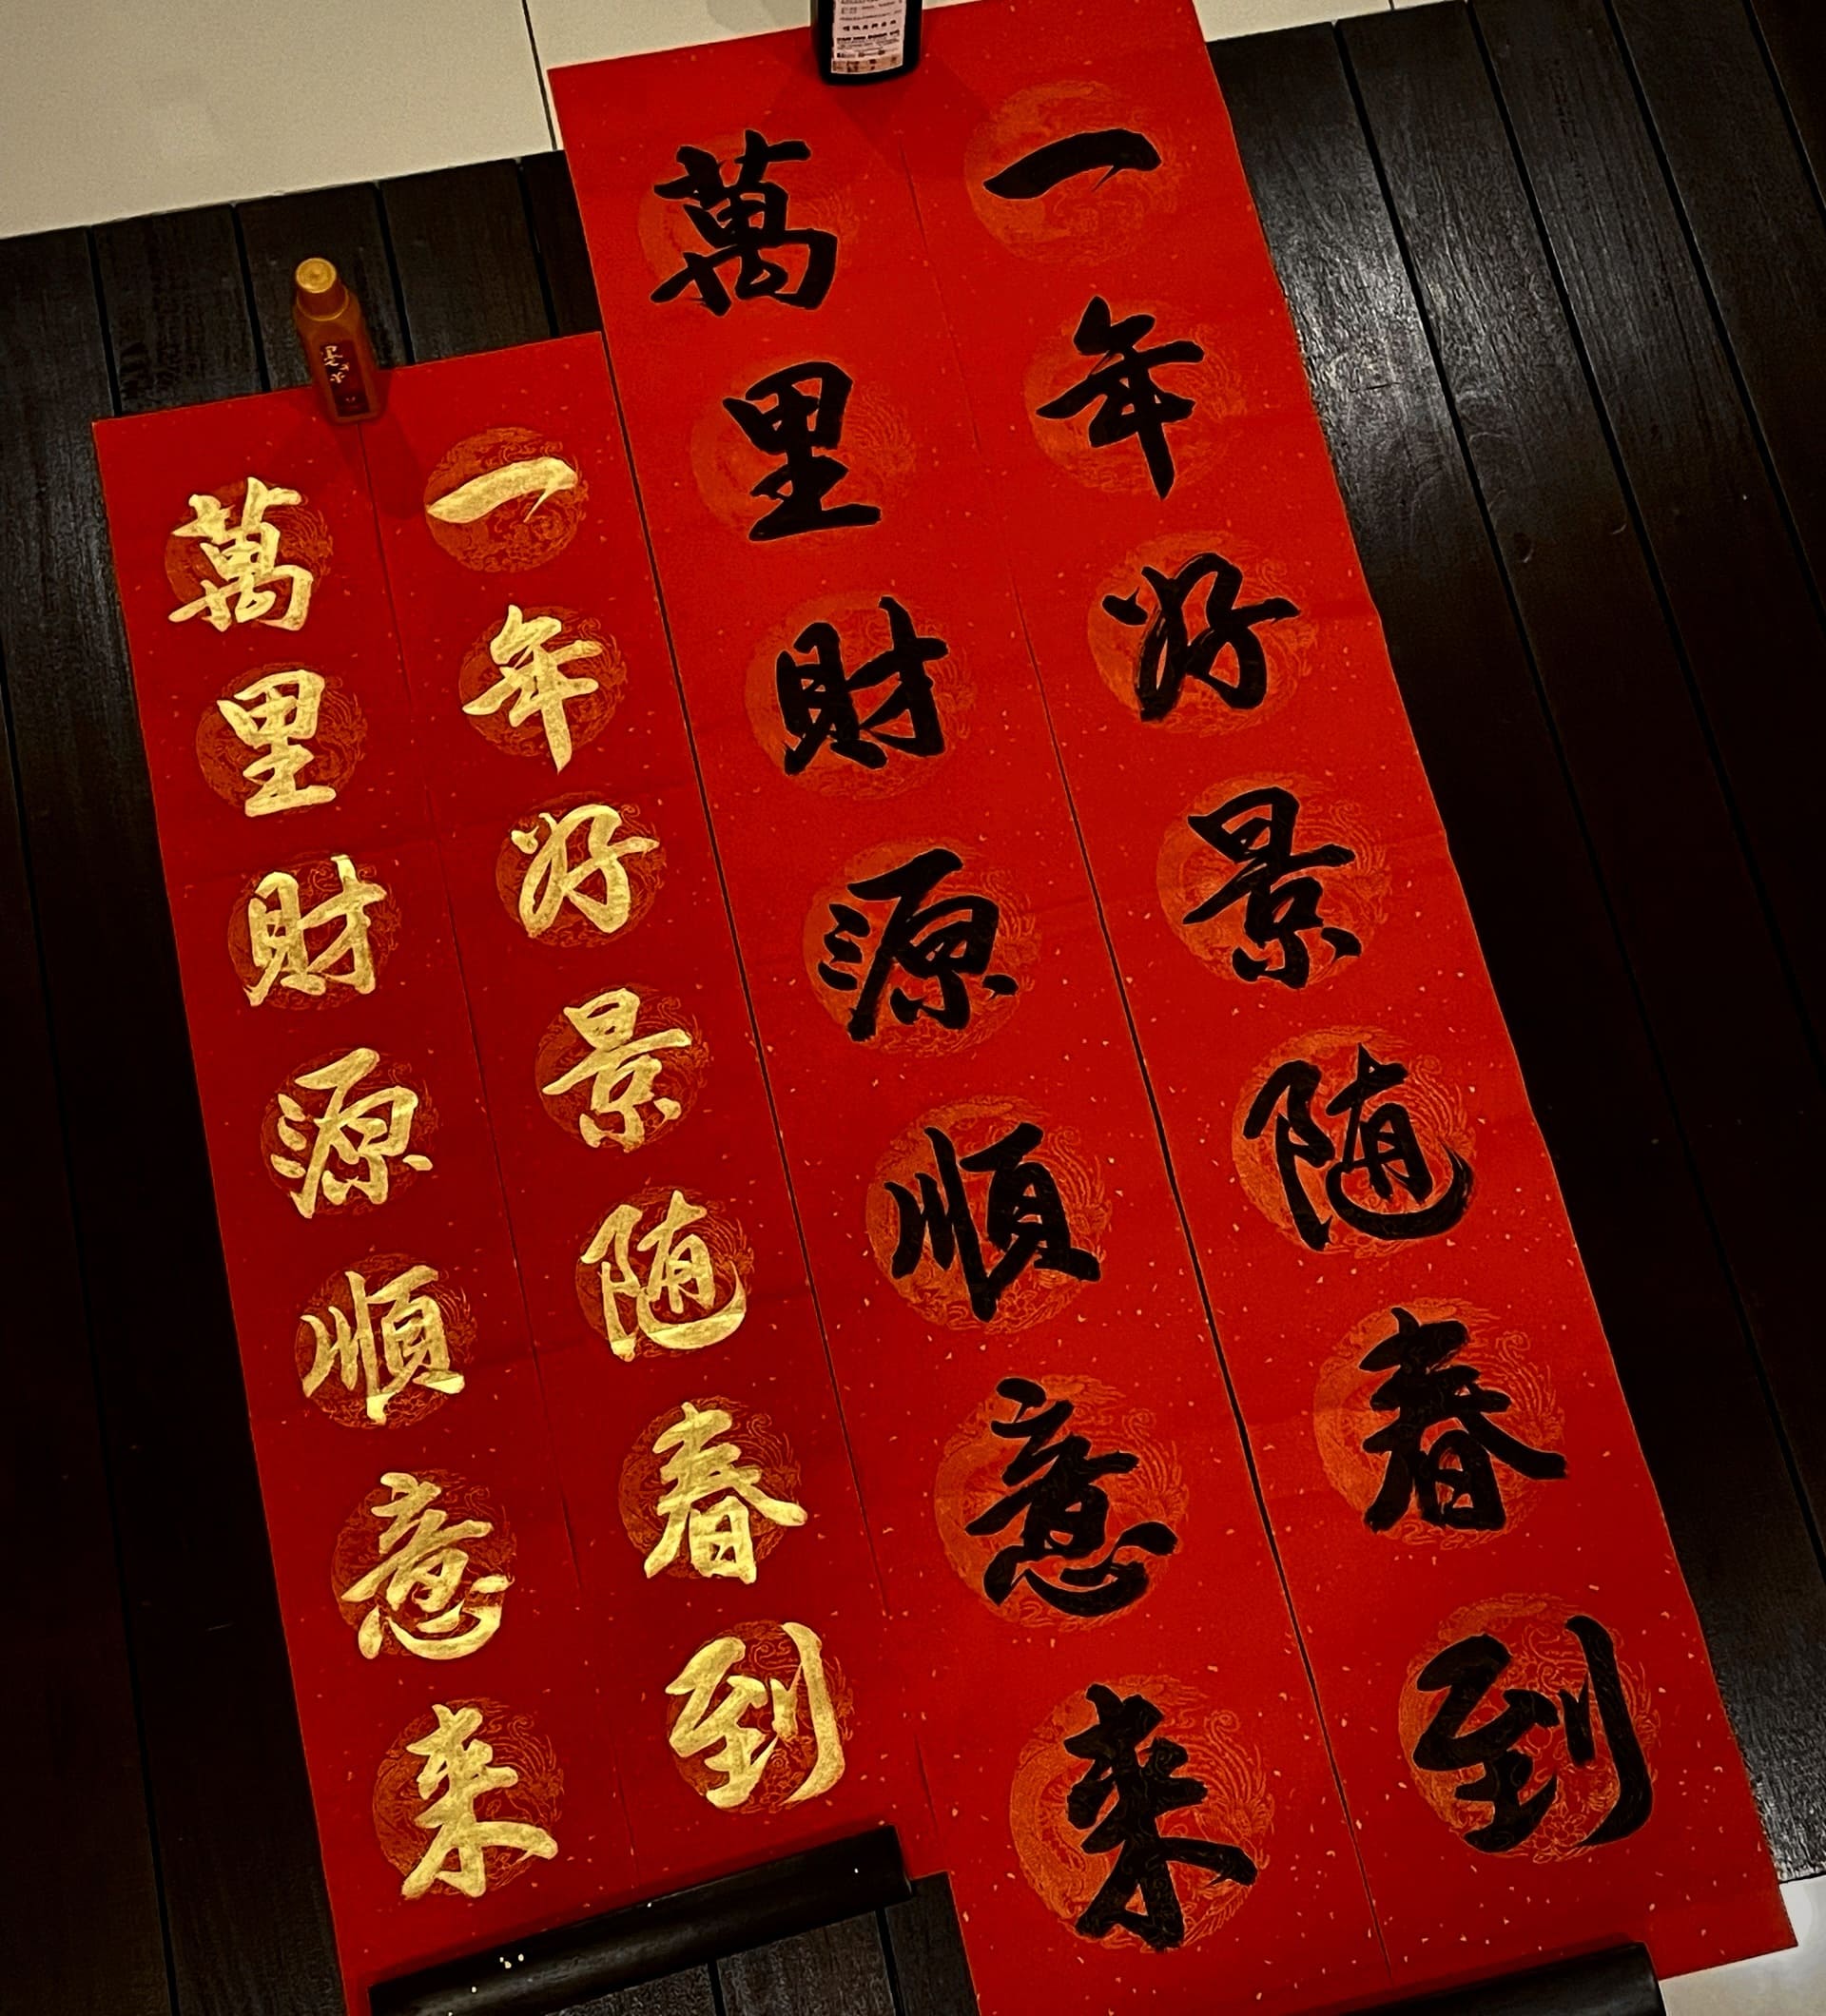 一年好景随春到
萬里財源順意来
一年好景随春到
萬里財源順意来